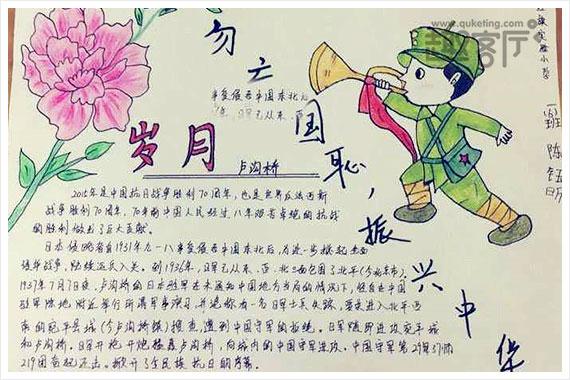 www.quketing.com
趣客厅
勿亡国耻，振兴中华
岁月
卢沟桥
2015年是中国抗日战争胜利70周年，也是世界反法西斯
战争胜利70周年，70年前中国人民经过八年艰苦卓绝的抗战
的胜利做出了巨大贡献。
日本侵略者自1931年九一八事变侵占中国东北后，为进一步挑起全面
侵华战争，陆续运兵入关。到1936年，日军已从东、西、北三面包围了北平（今北京市）。
1937年7月7日夜，卢沟桥的日本驻军在未通知中国地方当局的情况下，径自在中国
驻军阵地附近举行所谓军事演习，并诡称有一名日军士兵失踪，要求进入北平西
南的宛平县城（今卢沟桥镇）搜查，遭到中国守军的拒绝。日军随即进攻宛平城
和卢沟桥。日军开枪开炮猛轰卢沟桥，向城内的中国守军进攻。中国守军第29军37师
219团奋起还击。掀开了全民族抗日的序幕。
事变侵占中国东北后
日军已从东、西
一班
陈钰